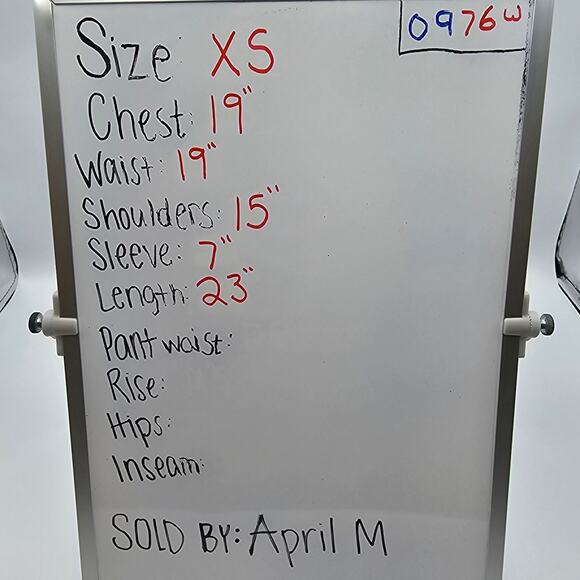 0976W
Size: XS
Chest: 19"
Waist: 19"
Shoulders: 15"
Sleeve: 7"
Length: 23"
Pant waist:
Rise:
Hips:
Inseam:
SOLD BY: April M